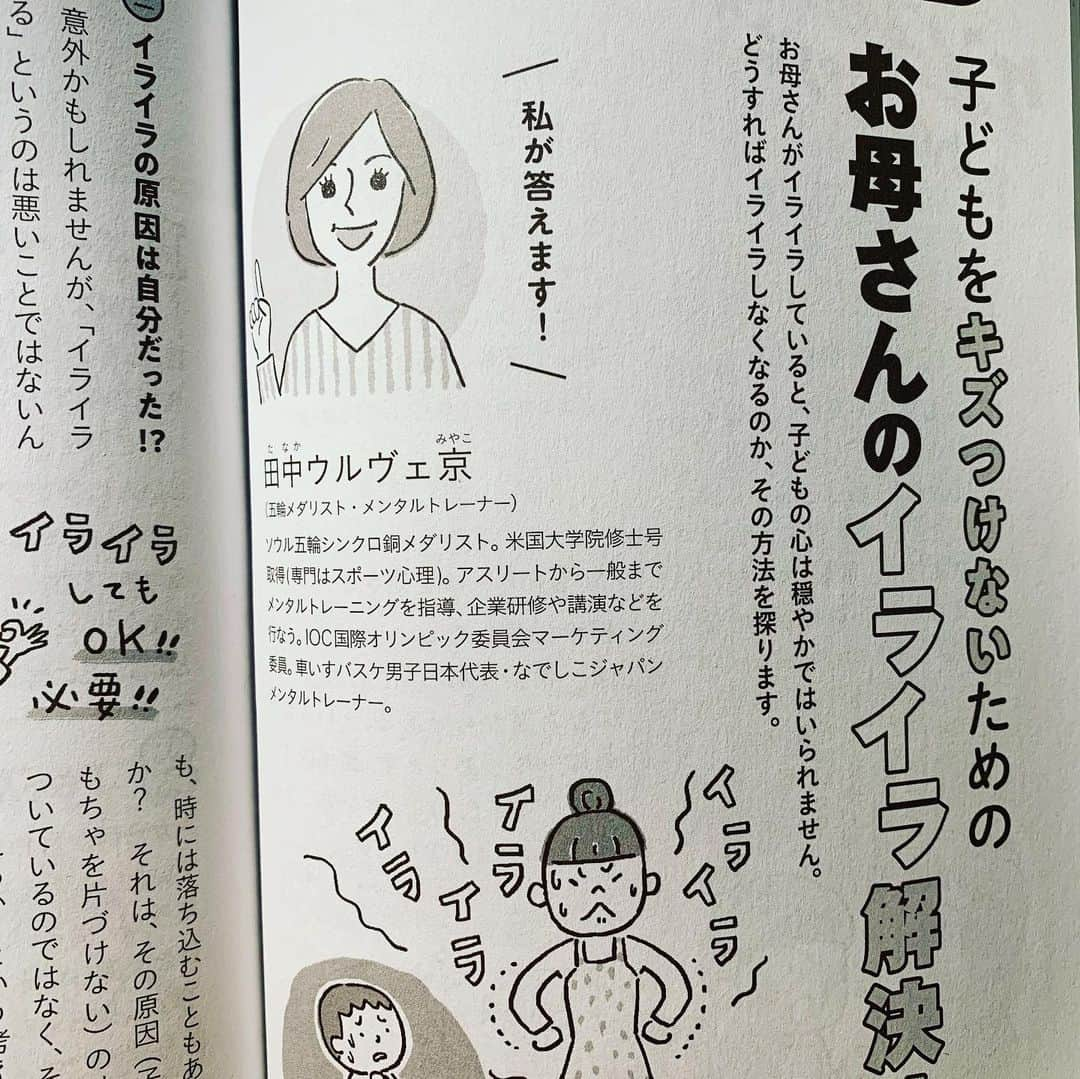 子どもをキズつけないための
お母さんのイライラ解決
お母さんがイライラしていると、子どもの心は穏やかではいられません。
どうすればイライラしなくなるのか、その方法を探ります。
私が答えます！
田中ウルヴェ京
たなか
みやこ
（五輪メダリスト・メンタルトレーナー）
ソウル五輪シンクロ銅メダリスト。米国大学院修士号
取得(専門はスポーツ心理)。アスリートから一般まで
メンタルトレーニングを指導、企業研修や講演などを
行なう。IOC国際オリンピック委員会マーケティング
委員。車いすバスケ男子日本代表・なでしこジャパン
メンタルトレーナー。
イライラ
イライラ
イライラ
イライラの原因は自分だった!?
意外かもしれませんが、「イライラ
る」というのは悪いことではないん
イライラ
しても
OK!!
必要!!
も、時には落ち込むこともあ
か？　それは、その原因（
もちゃを片づけない）の
ついているのではなく、そ